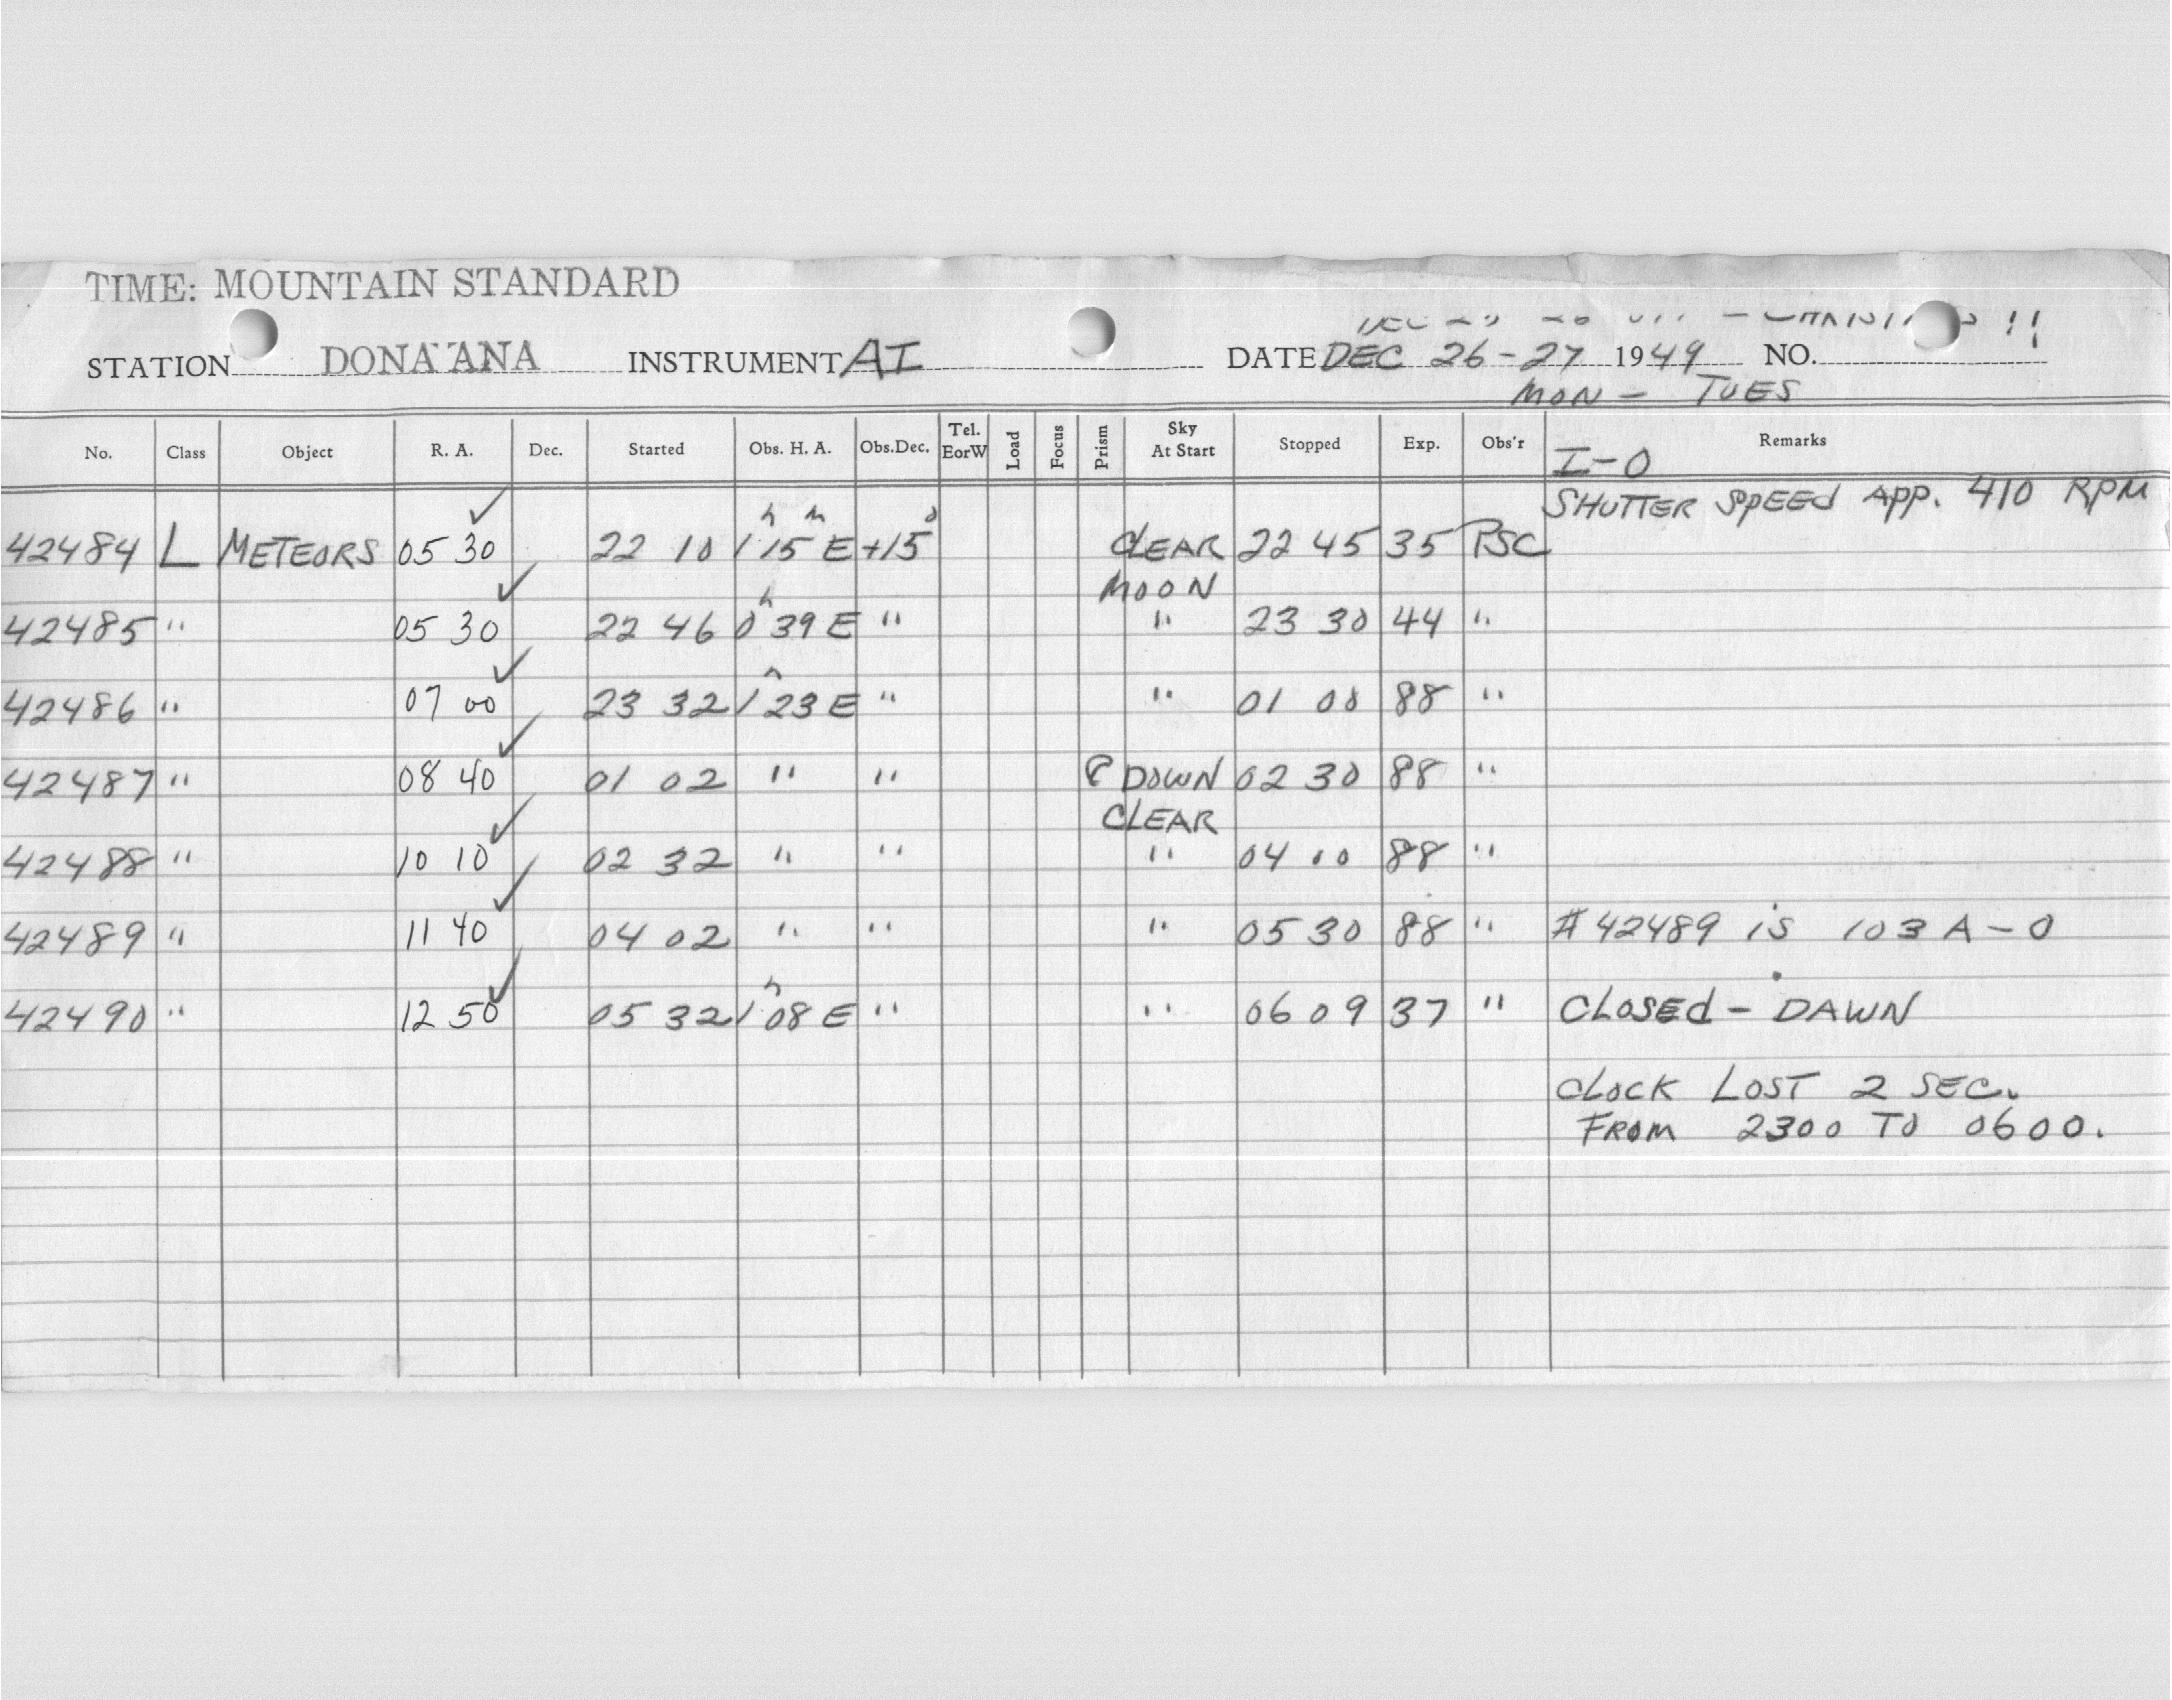 TIME: MOUNTAIN STANDARD
STATION DONA ANA INSTRUMENT AI DATE DEC 26-27 1949 NO.
MON - TUES
No. Class Object R. A. Dec. Started Obs. H. A. Obs.Dec. Tel. EorW Load Focus Prism Sky At Start Stopped Exp. Obs'r Remarks
I-O
SHUTTER SPEED APP. 410 RPM
42484 L METEORS 05 30 ✓ 22 10 1h 15m E +15° CLEAR 22 45 35 PSC
MOON
42485 " 05 30 ✓ 22 46 0h 39 E " " 23 30 44 "
42486 " 07 00 ✓ 23 32 1h 23 E " " 01 00 88 "
42487 " 08 40 ✓ 01 02 " " DOWN 02 30 88 "
CLEAR
42488 " 10 10 ✓ 02 32 " " " 04 00 88 "
42489 " 11 40 ✓ 04 02 " " " 05 30 88 " # 42489 is 103 A-O
42490 " 12 50 ✓ 05 32 1h 08 E " " 06 09 37 " CLOSED - DAWN
CLOCK LOST 2 SEC.
FROM 2300 TO 0600.